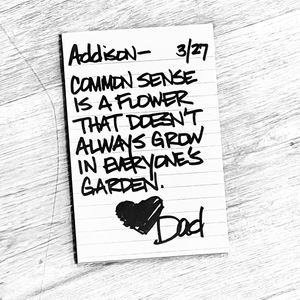 Addison— 3/27
COMMON SENSE
IS A FLOWER
THAT DOESN'T
ALWAYS GROW
IN EVERYONE'S
GARDEN.
Dad